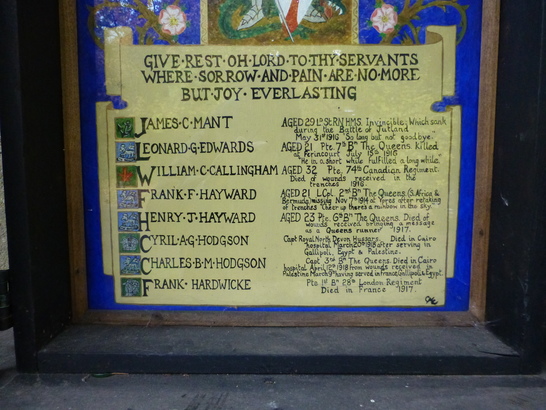 GIVE·REST·OH·LORD·TO·THY·SERVANTS
WHERE·SORROW·AND·PAIN·ARE·NO·MORE
BUT·JOY·EVERLASTING
JAMES·C·MANT
AGED 29 Lt RN HMS. Invincible; Which sank
during the Battle of Jutland
May 31st 1916 "So long but not goodbye"
LEONARD·G·EDWARDS
AGED 21 Pte. 7th Bn The Queens. Killed
at July 15th 1916
"He in a short while fulfilled a long while"
WILLIAM·C·CALLINGHAM
AGED 32 Pte, 74th Canadian Regiment.
Died of wounds received in the
trenches 1916
FRANK·F·HAYWARD
AGED 21 LCpl. 2nd Bn The Queens (S. Africa &
Bermuda) missing Nov 7th 1914 at Ypres after retaking
of trenches "Cheer up there's a rainbow in the sky"
HENRY·J·HAYWARD
AGED 23 Pte. 6th Bn The Queens. Died of
wounds received bringing a message
as a Queens runner 1917.
CYRIL·A·G·HODGSON
Capt Royal North Devon Hussars. Died in Cairo
hospital March 1918 after serving in
Gallipoli, Egypt & Palestine.
CHARLES·B·M·HODGSON
Capt 3rd Bn The Queens. Died in Cairo
hospital April 12th 1918 from wounds received in
Palestine March 9th having served in France Gallipoli & Egypt
FRANK HARDWICKE
Pte. 1st Bn 28th London Regiment
Died in France 1917.